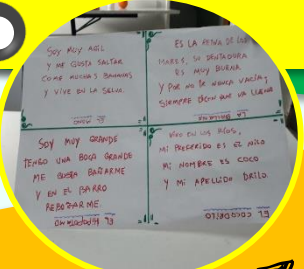 SOY MUY AGIL
Y ME GUSTA SALTAR
COME MUCHAS BANANAS
Y VIVE EN LA SELVA.
EL MONO
ES LA REINA DE LOS
MARES, SU DENTADURA
ES MUY BUENA
Y POR NO IR NUNCA VACIA,
SIEMPRE DICEN QUE VA LLENA
LA BALLENA
SOY MUY GRANDE
TENGO UNA BOCA GRANDE
ME GUSTA BAÑARME
Y EN EL BARRO
REBOZARME.
EL HIPOPOTAMO
VIVO EN LOS RIOS,
MI PREFERIDO ES EL NILO
MI NOMBRE ES COCO
Y MI APELLIDO DRILO.
EL COCODRILO